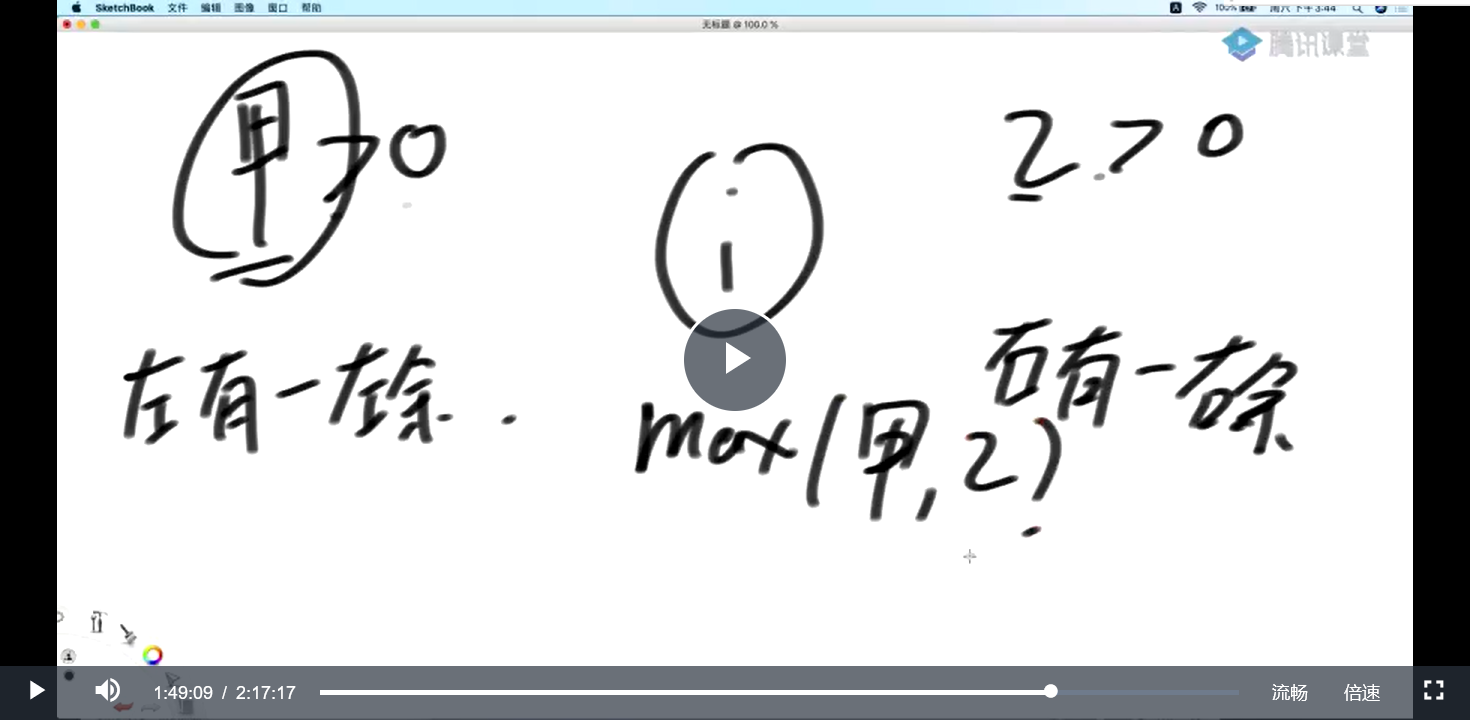 SketchBook 文件 编辑 图像 窗口 帮助
100% 周六下午3:44
无标题 @ 100.0 %
腾讯课堂
甲>0
2>0
i
左有-左余.
右有-右余
max(甲,2)
1:49:09 / 2:17:17
流畅 倍速